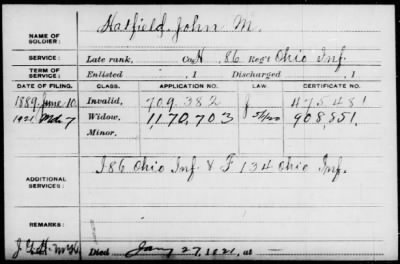 NAME OF SOLDIER: Hatfield, John M.
SERVICE: Late rank, Co. H, 86 Reg't Ohio Inf.
TERM OF SERVICE: Enlisted , 1 Discharged , 1
DATE OF FILING. CLASS. APPLICATION NO. LAW. CERTIFICATE NO.
1889 June 10 Invalid, 709.382 475481
1921 Mch 7 Widow, 1,170,703 908,551
Minor.
ADDITIONAL SERVICES: I 86 Ohio Inf & F 134 Ohio Inf.
REMARKS:
Died Jany 27, 1921, at —